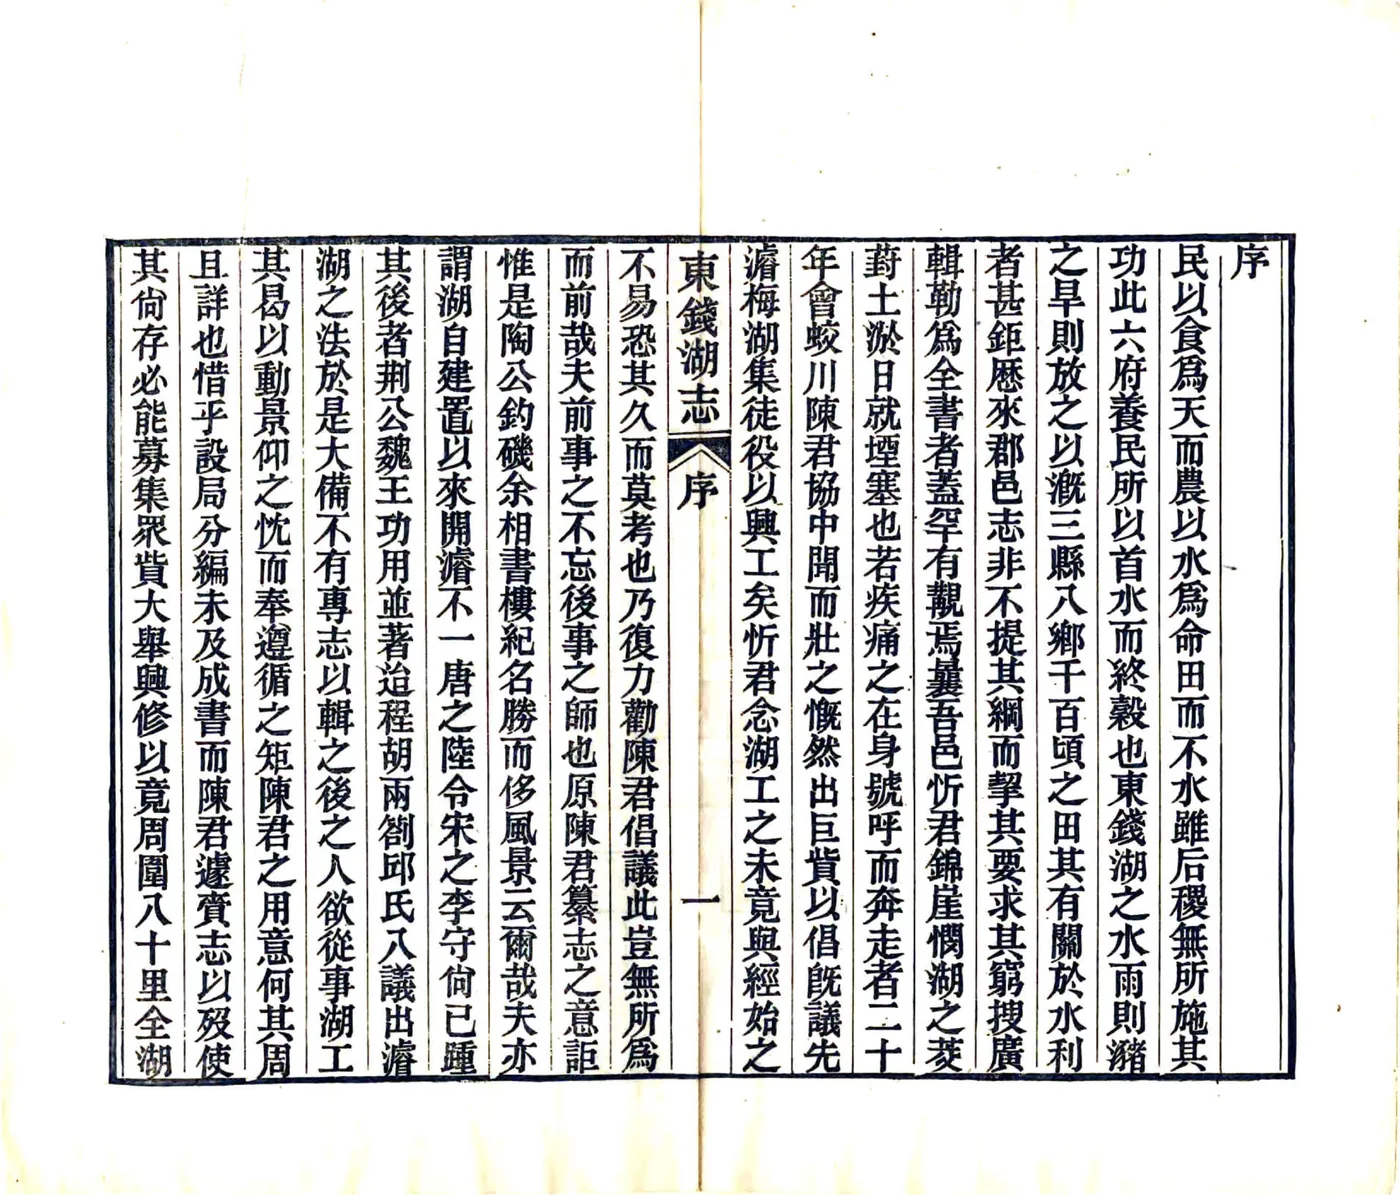 序
民以食爲天而農以水爲命田而不水雖后稷無所施其
功此六府養民所以首水而終穀也東錢湖之水雨則瀦
之旱則放之以漑三縣八鄉千百頃之田其有關於水利
者甚鉅歷來郡邑志非不提其綱而挈其要求其窮搜廣
輯勒爲全書者蓋罕有覯焉曩吾邑忻君錦崖憫湖之茭
葑土淤日就堙塞也若疾痛之在身號呼而奔走者二十
年會蛟川陳君協中聞而壯之慨然出巨貲以倡旣議先
濬梅湖集徒役以興工矣忻君念湖工之未竟與經始之
東錢湖志 序 一
不易恐其久而莫考也乃復力勸陳君倡議此豈無所爲
而前哉夫前事之不忘後事之師也原陳君纂志之意詎
惟是陶公釣磯余相書樓紀名勝而侈風景云爾哉夫亦
謂湖自建置以來開濬不一唐之陸令宋之李守尙已踵
其後者荆公魏王功用並著迨程胡兩劄邱氏八議出濬
湖之法於是大備不有專志以輯之後之人欲從事湖工
其曷以動景仰之忱而奉遵循之矩陳君之用意何其周
且詳也惜乎設局分編未及成書而陳君遽賫志以歿使
其尙存必能募集眾貲大舉興修以竟周圍八十里全湖